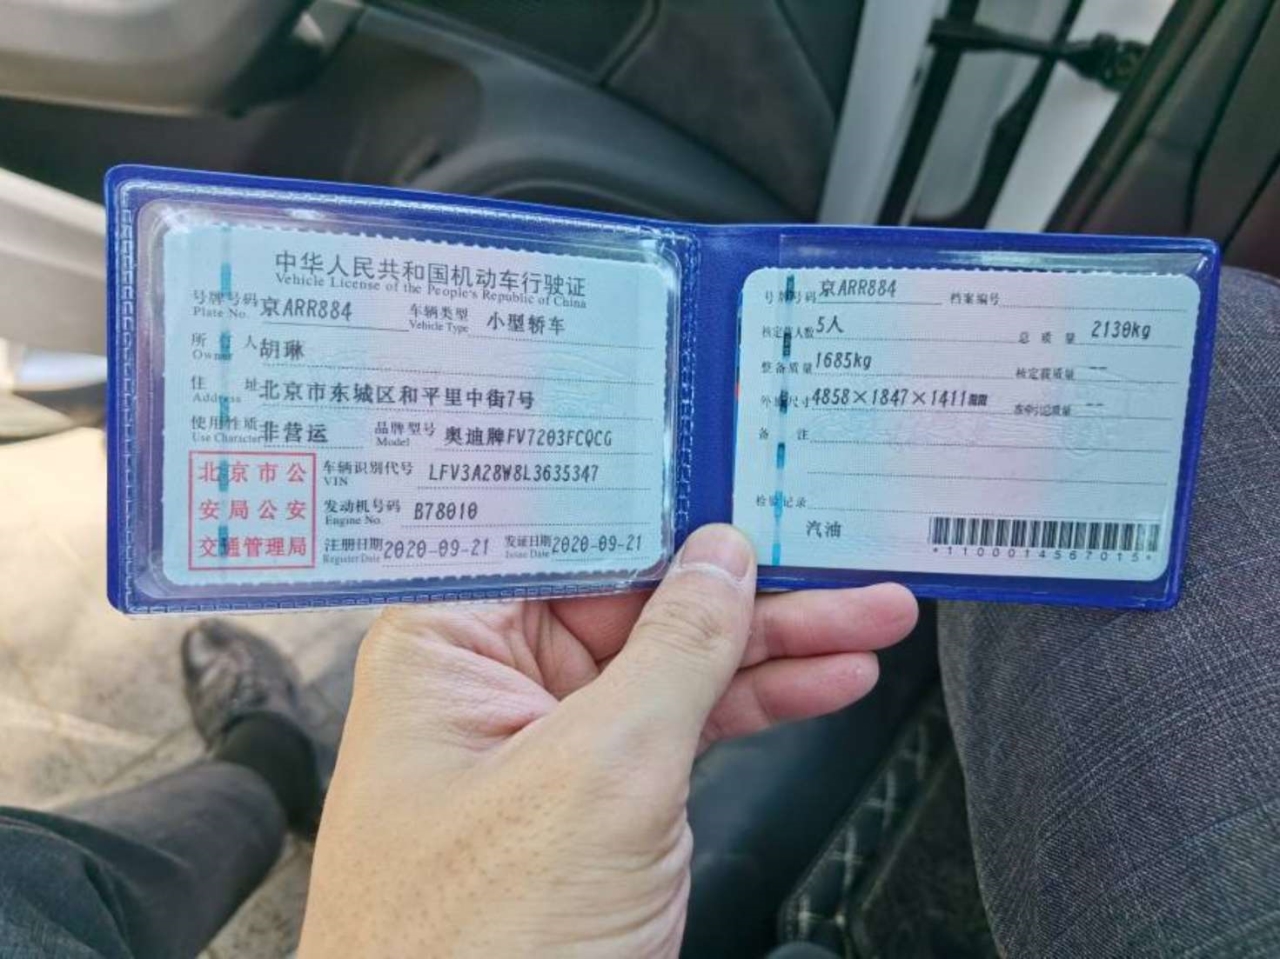 中华人民共和国机动车行驶证
Vehicle License of the People's Republic of China
号牌号码 京ARR884 车辆类型 小型轿车
Plate No. Vehicle Type
所有人 胡琳
Owner
住址 北京市东城区和平里中街7号
Address
使用性质 非营运 品牌型号 奥迪牌FV7203FCQCG
Use Character Model
北京市公
安局公安
交通管理局
车辆识别代号 LFV3A28W8L3635347
VIN
发动机号码 B78010
Engine No.
注册日期 2020-09-21 发证日期 2020-09-21
Register Date Issue Date
号牌号码 京ARR884 档案编号
核定载人数 5人 总质量 2130kg
整备质量 1685kg 核定载质量 --
外廓尺寸 4858×1847×1411mm 准牵引总质量 --
备注
检验记录
汽油
*1100014567015*